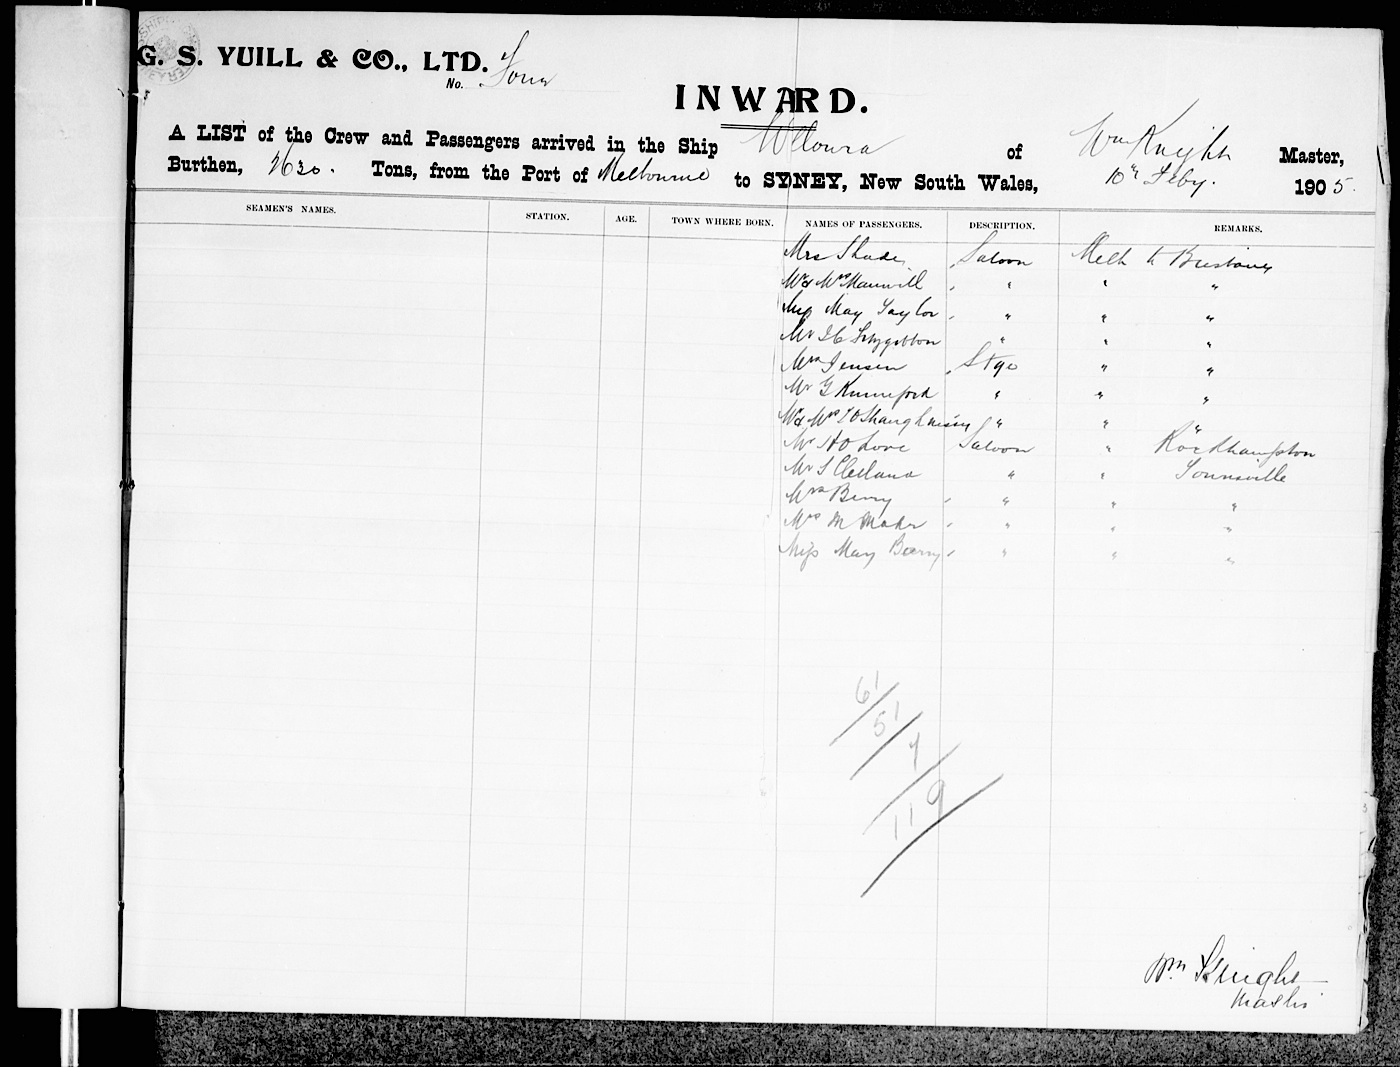 G. S. YUILL & CO., LTD.
No. Four
INWARD.
A LIST of the Crew and Passengers arrived in the Ship Wilcura of Wm Knight Master,
Burthen, Tons, from the Port of Melbourne to SYDNEY, New South Wales, 10th Feby. 1905.
SEAMEN'S NAMES. STATION. AGE. TOWN WHERE BORN. NAMES OF PASSENGERS. DESCRIPTION. REMARKS.
Mrs Saloon Melb to Brisbane
Mr & Mrs " " "
Miss May Taylor " " "
Mr Fitzgibbon " " "
Mrs Jensen Stge " "
Mr G " " "
Mr & Mrs O'Shaughnessy " " "
Mr Love Saloon " Rockhampton
Mr Cleland " " Townsville
Mrs Berry " " "
Mrs M Maher " " "
Miss May Berry " " "
61
51
7
119
Wm Knight
Master